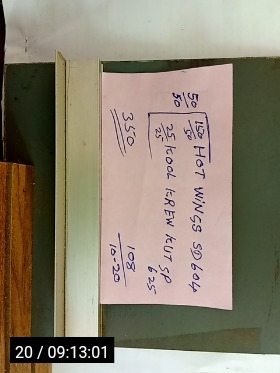 50 | 150 HOT WINGS SD 604
50 | 50
25 KOOL KREW KUT SP 625
25
350
108
10-20
20 / 09:13:01